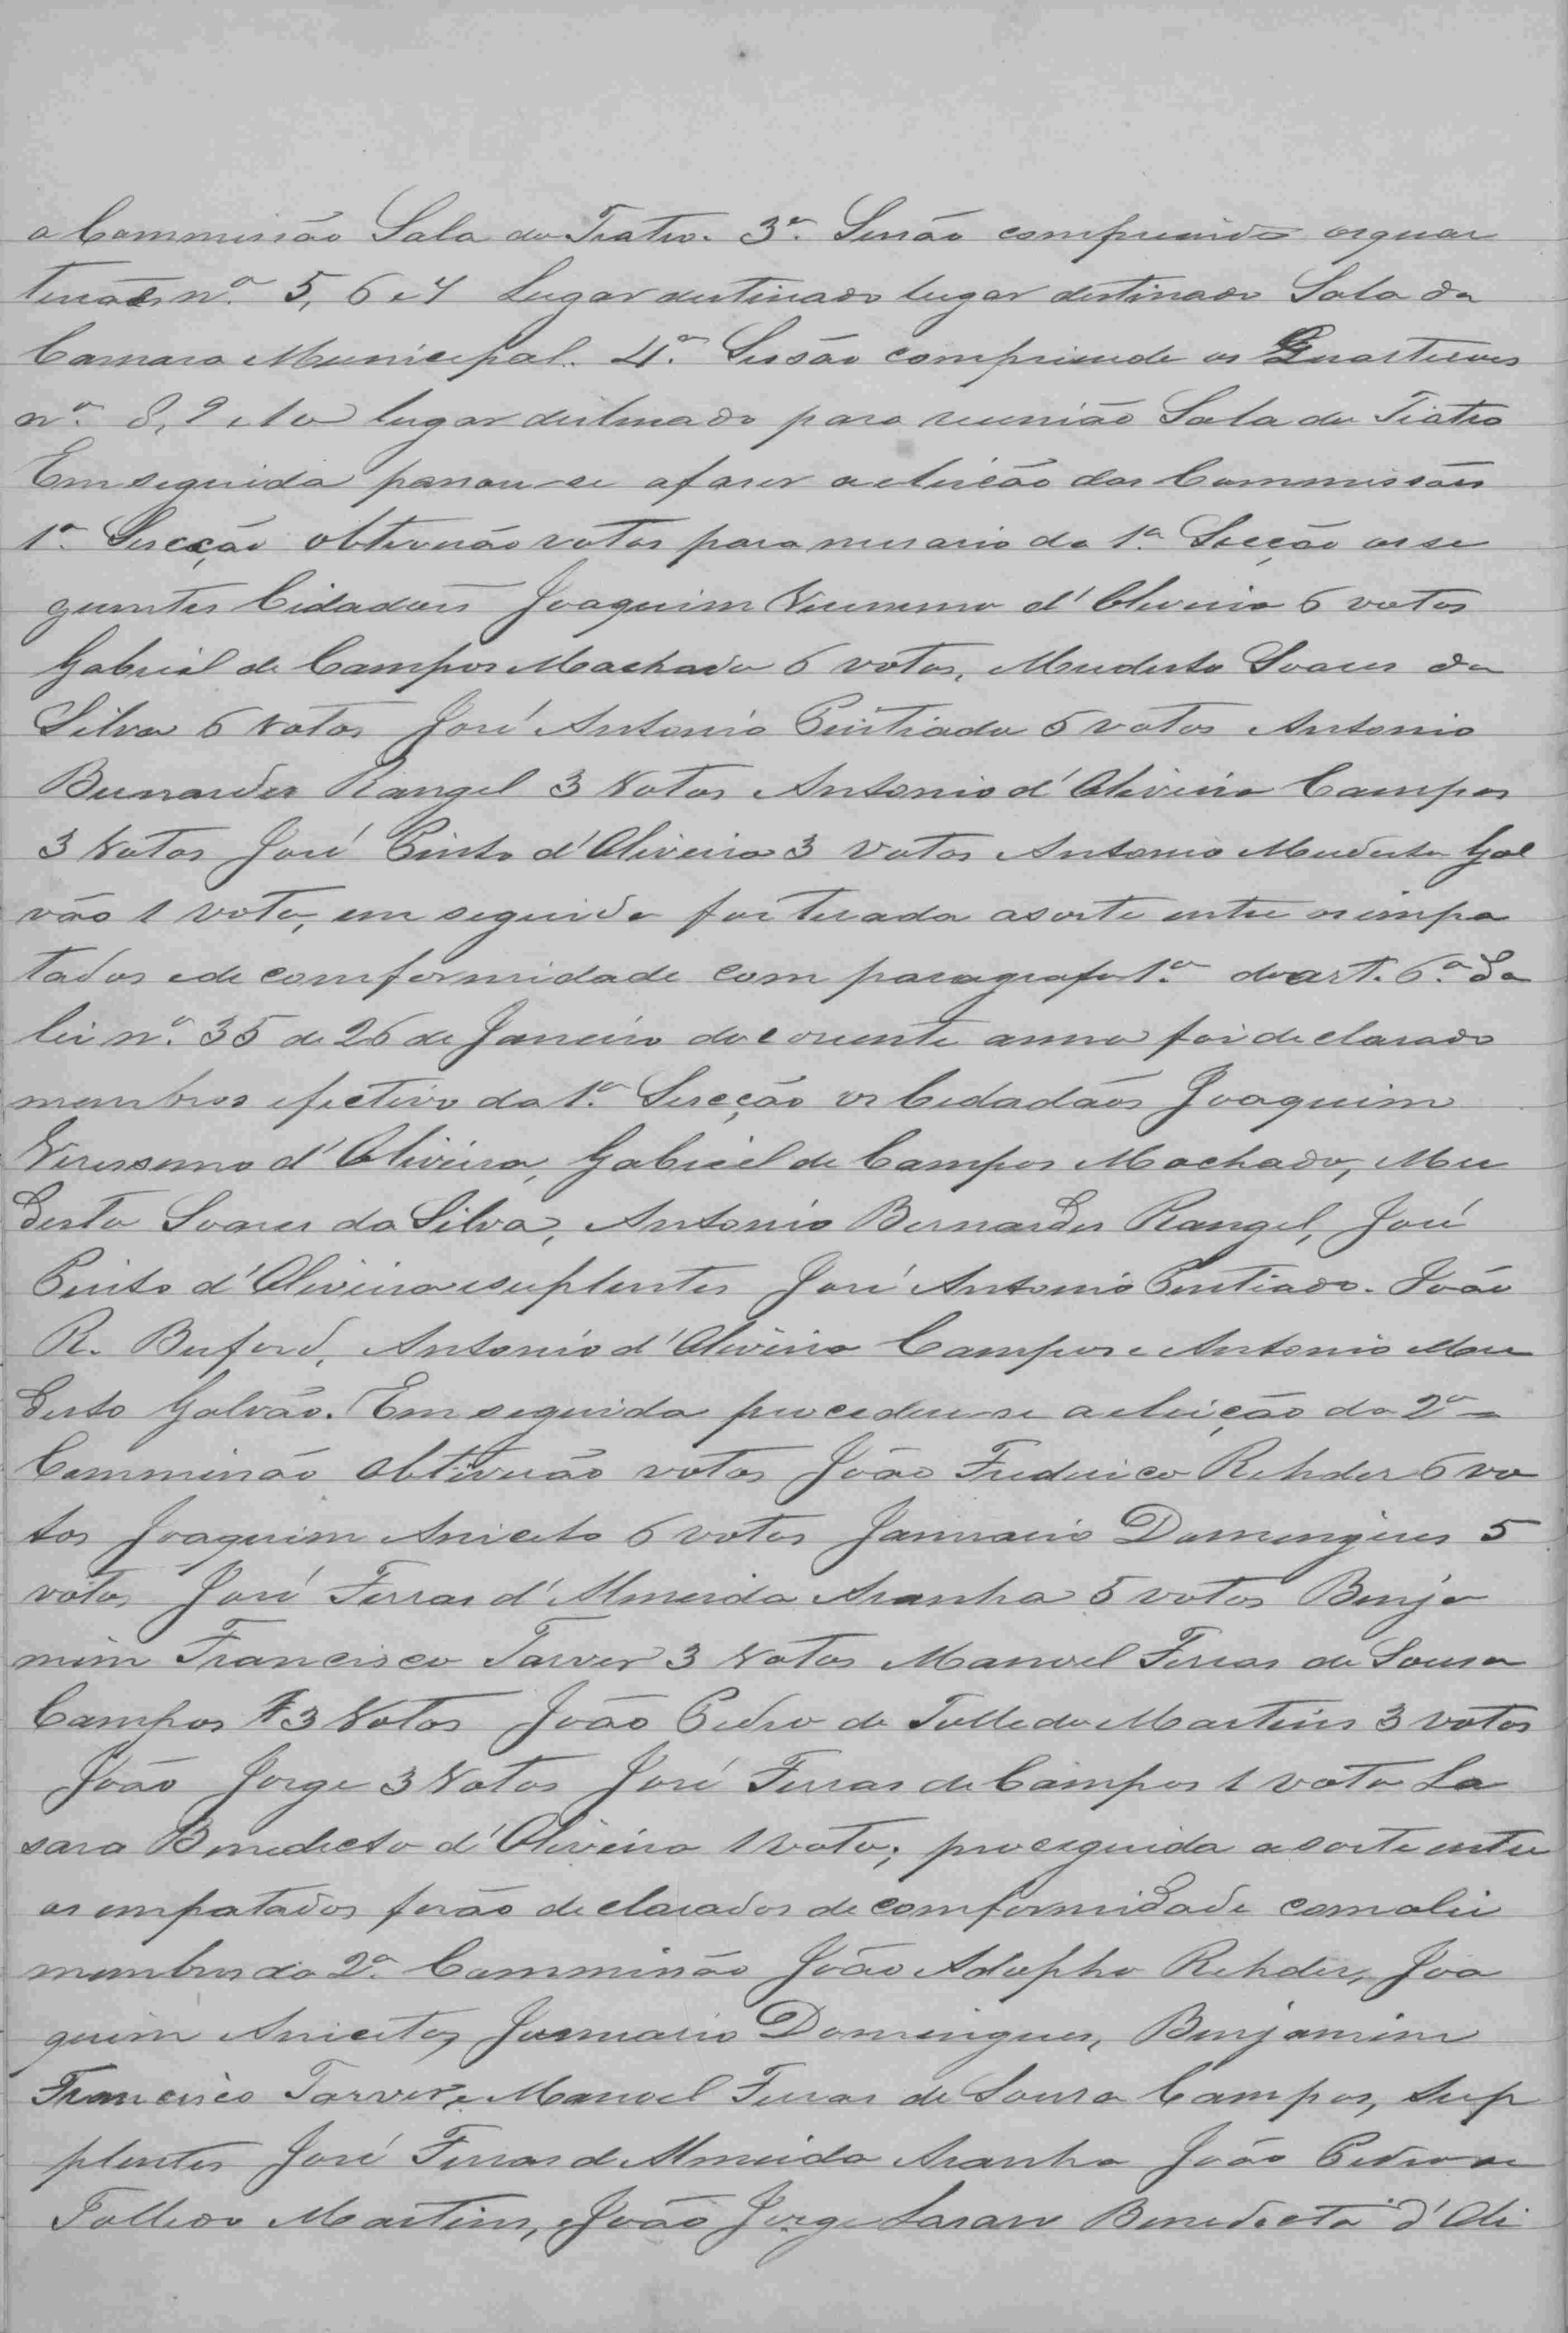 a Commissão Sala do Teatro. 3ª. Sessão comprende os quar
teirães nº. 5, 6 e 7 Lugar destinado lugar destinado Sala da
Camara Municipal. 4ª. Sessão comprende os Quarteirões
nº. 8, 9 e 10 lugar destinado para reunião Sala do Teatro
Em seguida passou-se afaser a eleicão das Commissões
1ª. Secção obteverão votos para mesario da 1ª. Secção os se
guintes Cidadões Joaquim Verissemo d'Oliveira 6 votos
Gabriel de Campos Machado 6 votos, Mudesto Soares da
Silva 6 Votos José Antonio Pintiado 5 votos Antonio
Bernardes Rangel 3 Votos Antonio d'Oliveira Campos
3 Votos José Pinto d'Oliveira 3 Votos Antonio Mudesto Gal
vão 1 voto, em seguida foi tirada a sorte entre os impa
tados e de comformidade com paragrafo 1º. do art. 6º. da
lei nº. 35 de 26 de Janeiro do corrente anno foi declarado
membros efectivo da 1ª. Secção os Cidadãos Joaquim
Verissemo d'Oliveira, Gabriel de Campos Machado, Mu
desto Soares da Silva, Antonio Bernardes Rangel, José
Pinto d'Oliveira e suplentes José Antonio Pintiado. João
R. Buford, Antonio d'Oliveira Campos e Antonio Mu
desto Galvão. Em seguida procedeu-se a eleição da 2ª
Commissão Obtiverão votos João Frederico Rehder 6 vo
tos Joaquim Aniceto 6 votos Januario Domingues 5
votos José Ferras d'Almeida Aranha 5 votos Benja
mim Francisco Tarver 3 Votos Manoel Ferras de Sousa
Campos 3 Votos João Pedro de Tolledo Martins 3 votos
João Jorge 3 Votos José Ferras de Campos 1 voto La
saro Benedicto d'Oliveira 1 voto; proseguida a sorte entre
os empatados forão declarados de comformidade com a lei
membros da 2ª. Commissão João Adolpho Rehder, Joa
quim Aniceto, Januario Domingues, Benjamim
Francisco Tarver, e Manoel Ferras de Sousa Campos, Sup
plentes José Ferras d'Almeida Aranha João Pedro de
Tolledo Martins, e João Jorge Lasaro Benedicto d'Oli